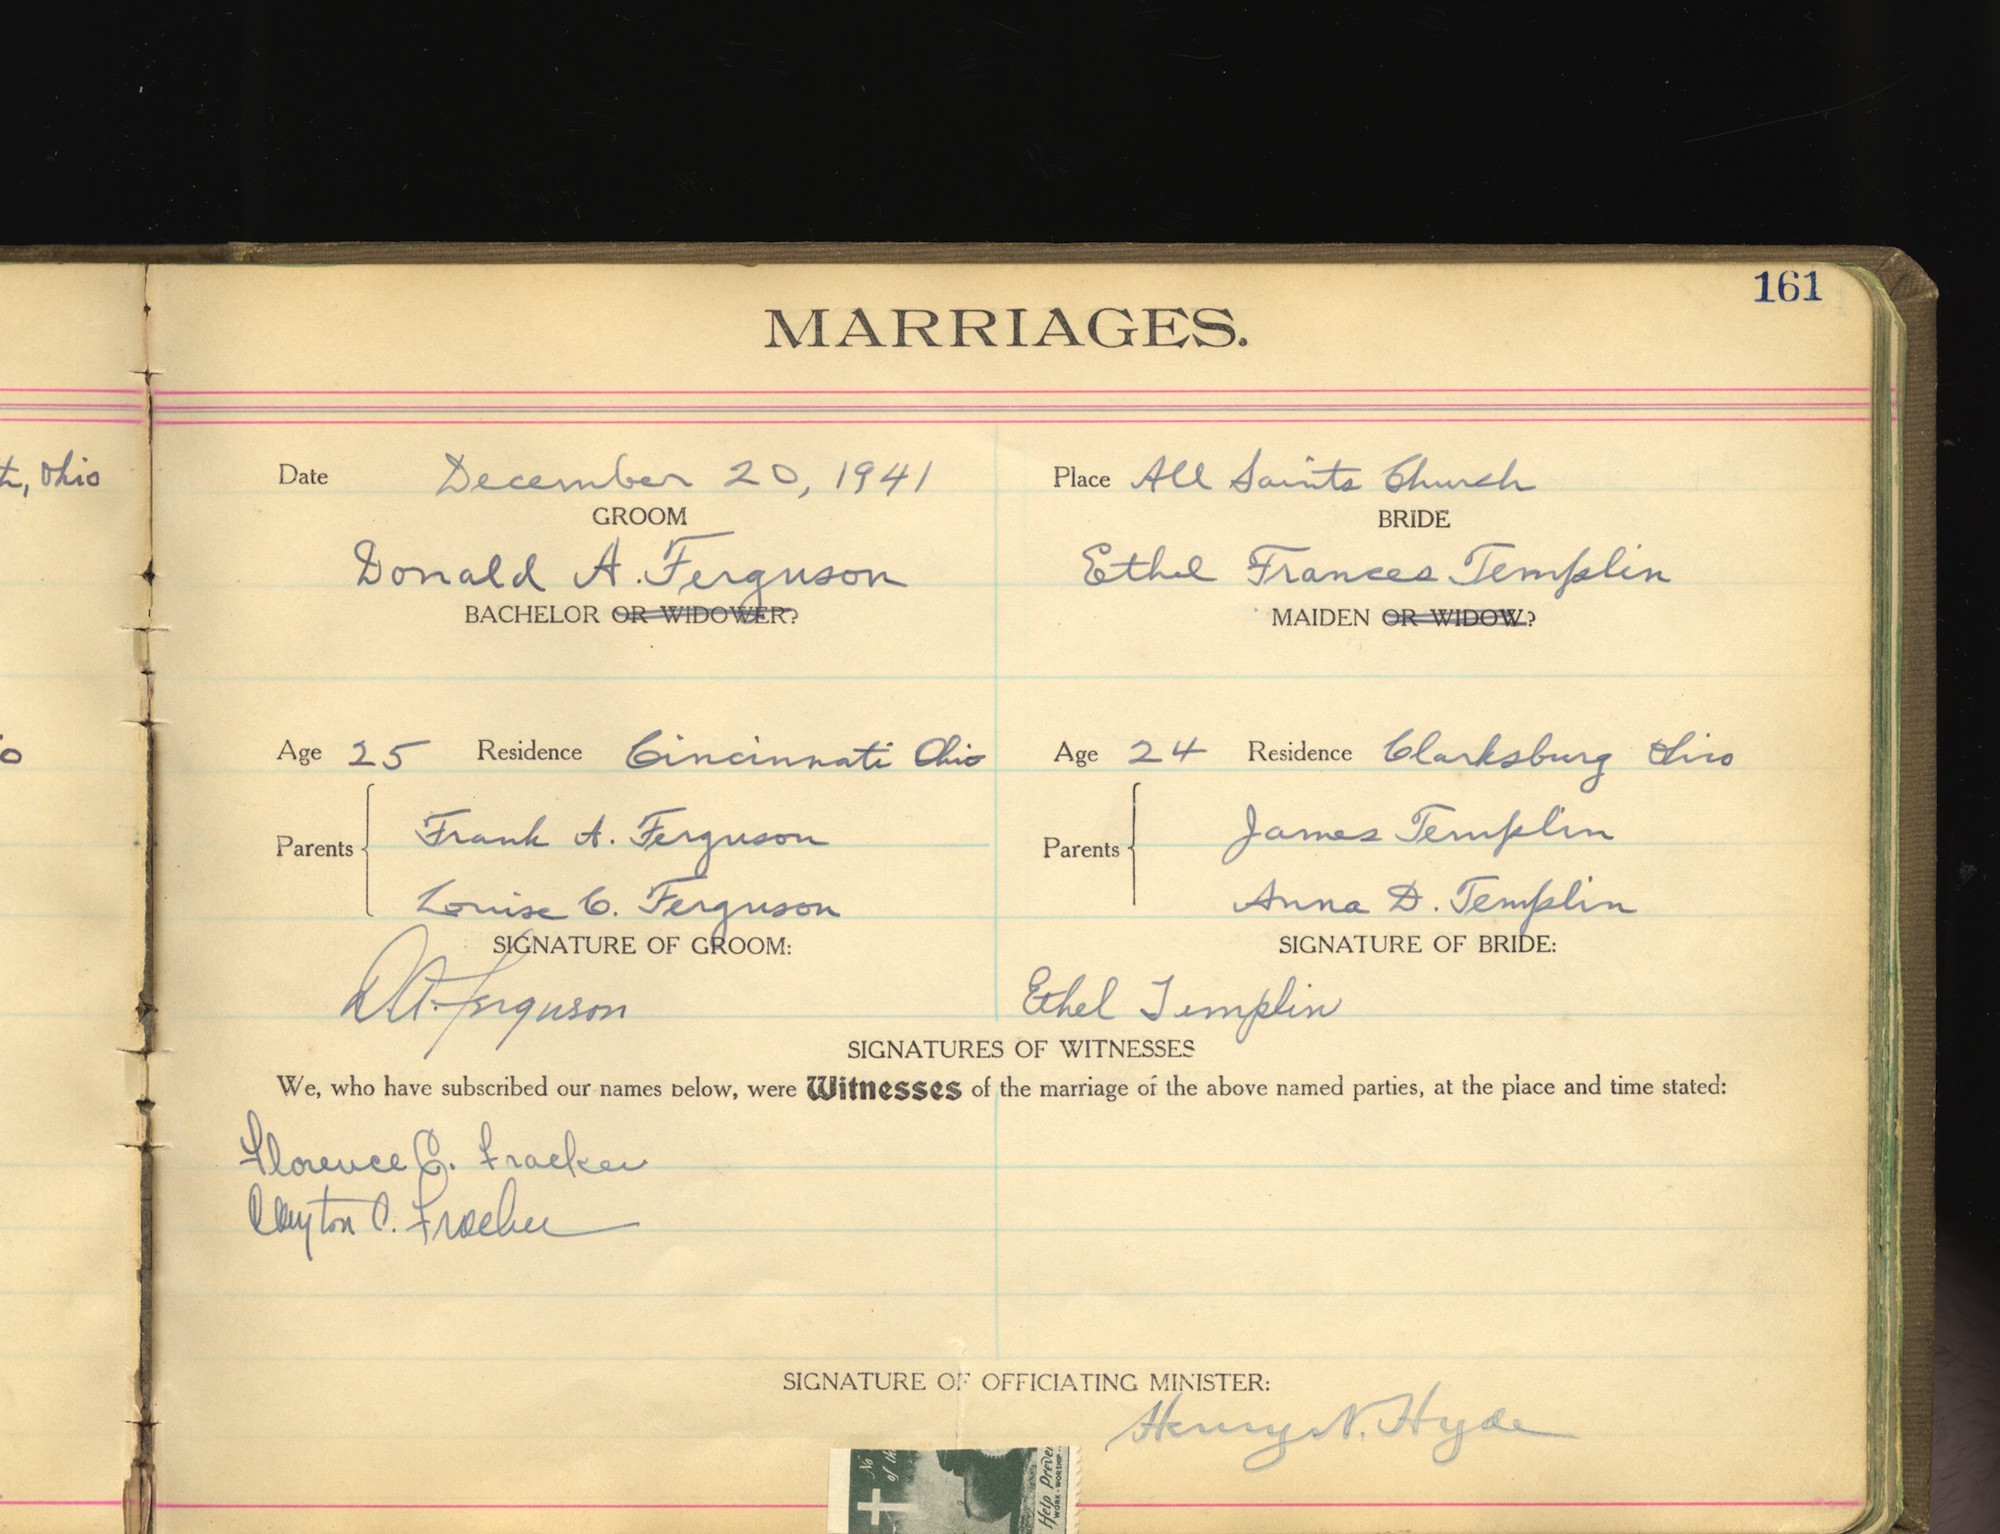 161
MARRIAGES.
, Ohio
Date December 20, 1941 Place All Saints Church
GROOM BRIDE
Donald A. Ferguson Ethel Frances Templin
BACHELOR OR WIDOWER? MAIDEN OR WIDOW?
Age 25 Residence Cincinnati Ohio Age 24 Residence Clarksburg Ohio
Parents Frank A. Ferguson Parents James Templin
Louise C. Ferguson Anna D. Templin
SIGNATURE OF GROOM: SIGNATURE OF BRIDE:
D.A. Ferguson Ethel Templin
SIGNATURES OF WITNESSES
We, who have subscribed our names below, were Witnesses of the marriage of the above named parties, at the place and time stated:
Florence C. Fracker
Clayton C. Fracker
SIGNATURE OF OFFICIATING MINISTER:
Henry N. Hyde
No
of the
Help
WORK - WORSHIP